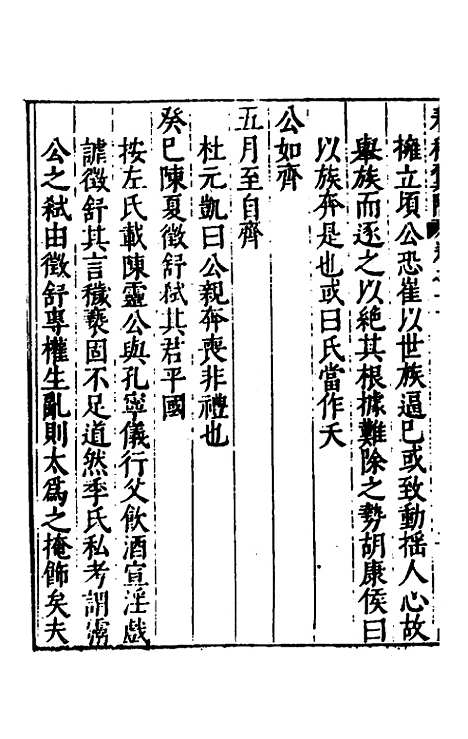 擁立頃公恐崔以世族逼已或致動揺人心故
舉族而逐之以絕其根據難除之勢胡康侯曰
以族奔是也或曰氏當作夭
公如齊
五月至自齊
杜元凱曰公親奔喪非禮也
癸巳陳夏徵舒弑其君平國
按左氏載陳靈公與孔寧儀行父飲酒宣淫戲
謔徵舒其言穢褻固不足道然季氏私考謂靈
公之弑由徵舒專權生亂則太爲之掩飾矣夫